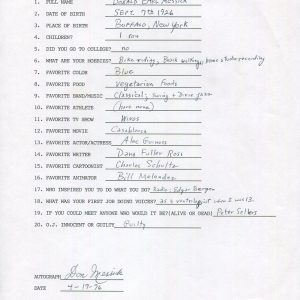 1. FULL NAME Donald Earl Messick
2. DATE OF BIRTH Sept. 7th 1926
3. PLACE OF BIRTH Buffalo, New York
4. CHILDREN? 1 son
5. DID YOU GO TO COLLEGE? no
6. WHAT ARE YOUR HOBBIES? Bike riding, Beach walking, home studio recording
7. FAVORITE COLOR Blue
8. FAVORITE FOOD Vegetarian Foods
9. FAVORITE BAND/MUSIC Classical; Swing + Dixie jazz
10. FAVORITE ATHLETE (have none)
11. FAVORITE TV SHOW Wings
12. FAVORITE MOVIE Casablanca
13. FAVORITE ACTOR/ACTRESS Alec Guiness
14. FAVORITE WRITER Dana Fuller Ross
15. FAVORITE CARTOONIST Charles Schultz
16. FAVORITE ANIMATOR Bill Melendez
17. WHO INSPIRED YOU TO DO WHAT YOU DO? Radio: Edgar Bergen
18. WHAT WAS YOUR FIRST JOB DOING VOICES? as a ventriloquist when I was 13.
19. IF YOU COULD MEET ANYONE WHO WOULD IT BE?(ALIVE OR DEAD) Peter Sellers
20. O.J. INNOCENT OR GUILTY Guilty
AUTOGRAPH Don Messick
DATE 4-19-96